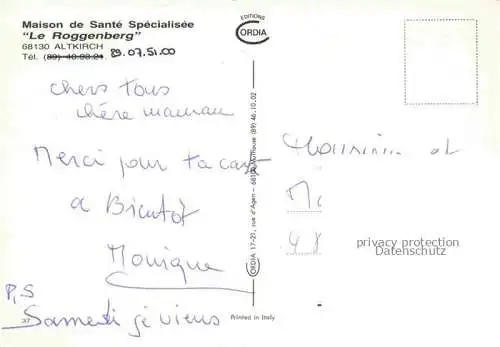 Maison de Santé Spécialisée
"Le Roggenberg"
68130 ALTKIRCH
Tél. (89) 40.93.21. 89.07.51.00
chers tous
chère maman
Merci pour ta carte
a Bientôt
Monique
P,S
Samedi je viens
37
EDITIONS
CORDIA
CORDIA 17-21, rue d'Agen - 68100 Mulhouse (89) 46.10.02
Printed in Italy
privacy protection
Datenschutz